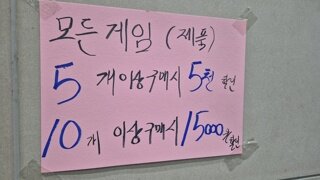 모든게임 (제품)
5 개이상구매시 5천 할인
10개 이상구매시 15000원할인